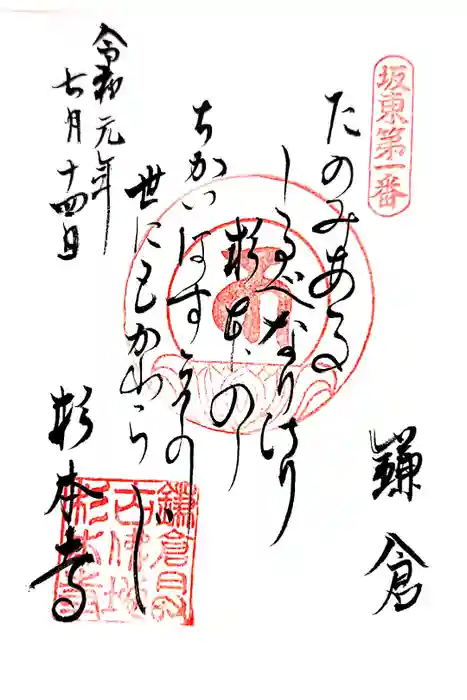 坂東第一番
鎌倉
たのみある
しるべなりけり
杉本の
ちかいはすゑの
世にもかわらじ
令和元年
七月十四日
杉本寺
鎌倉最
古佛
杉本寺